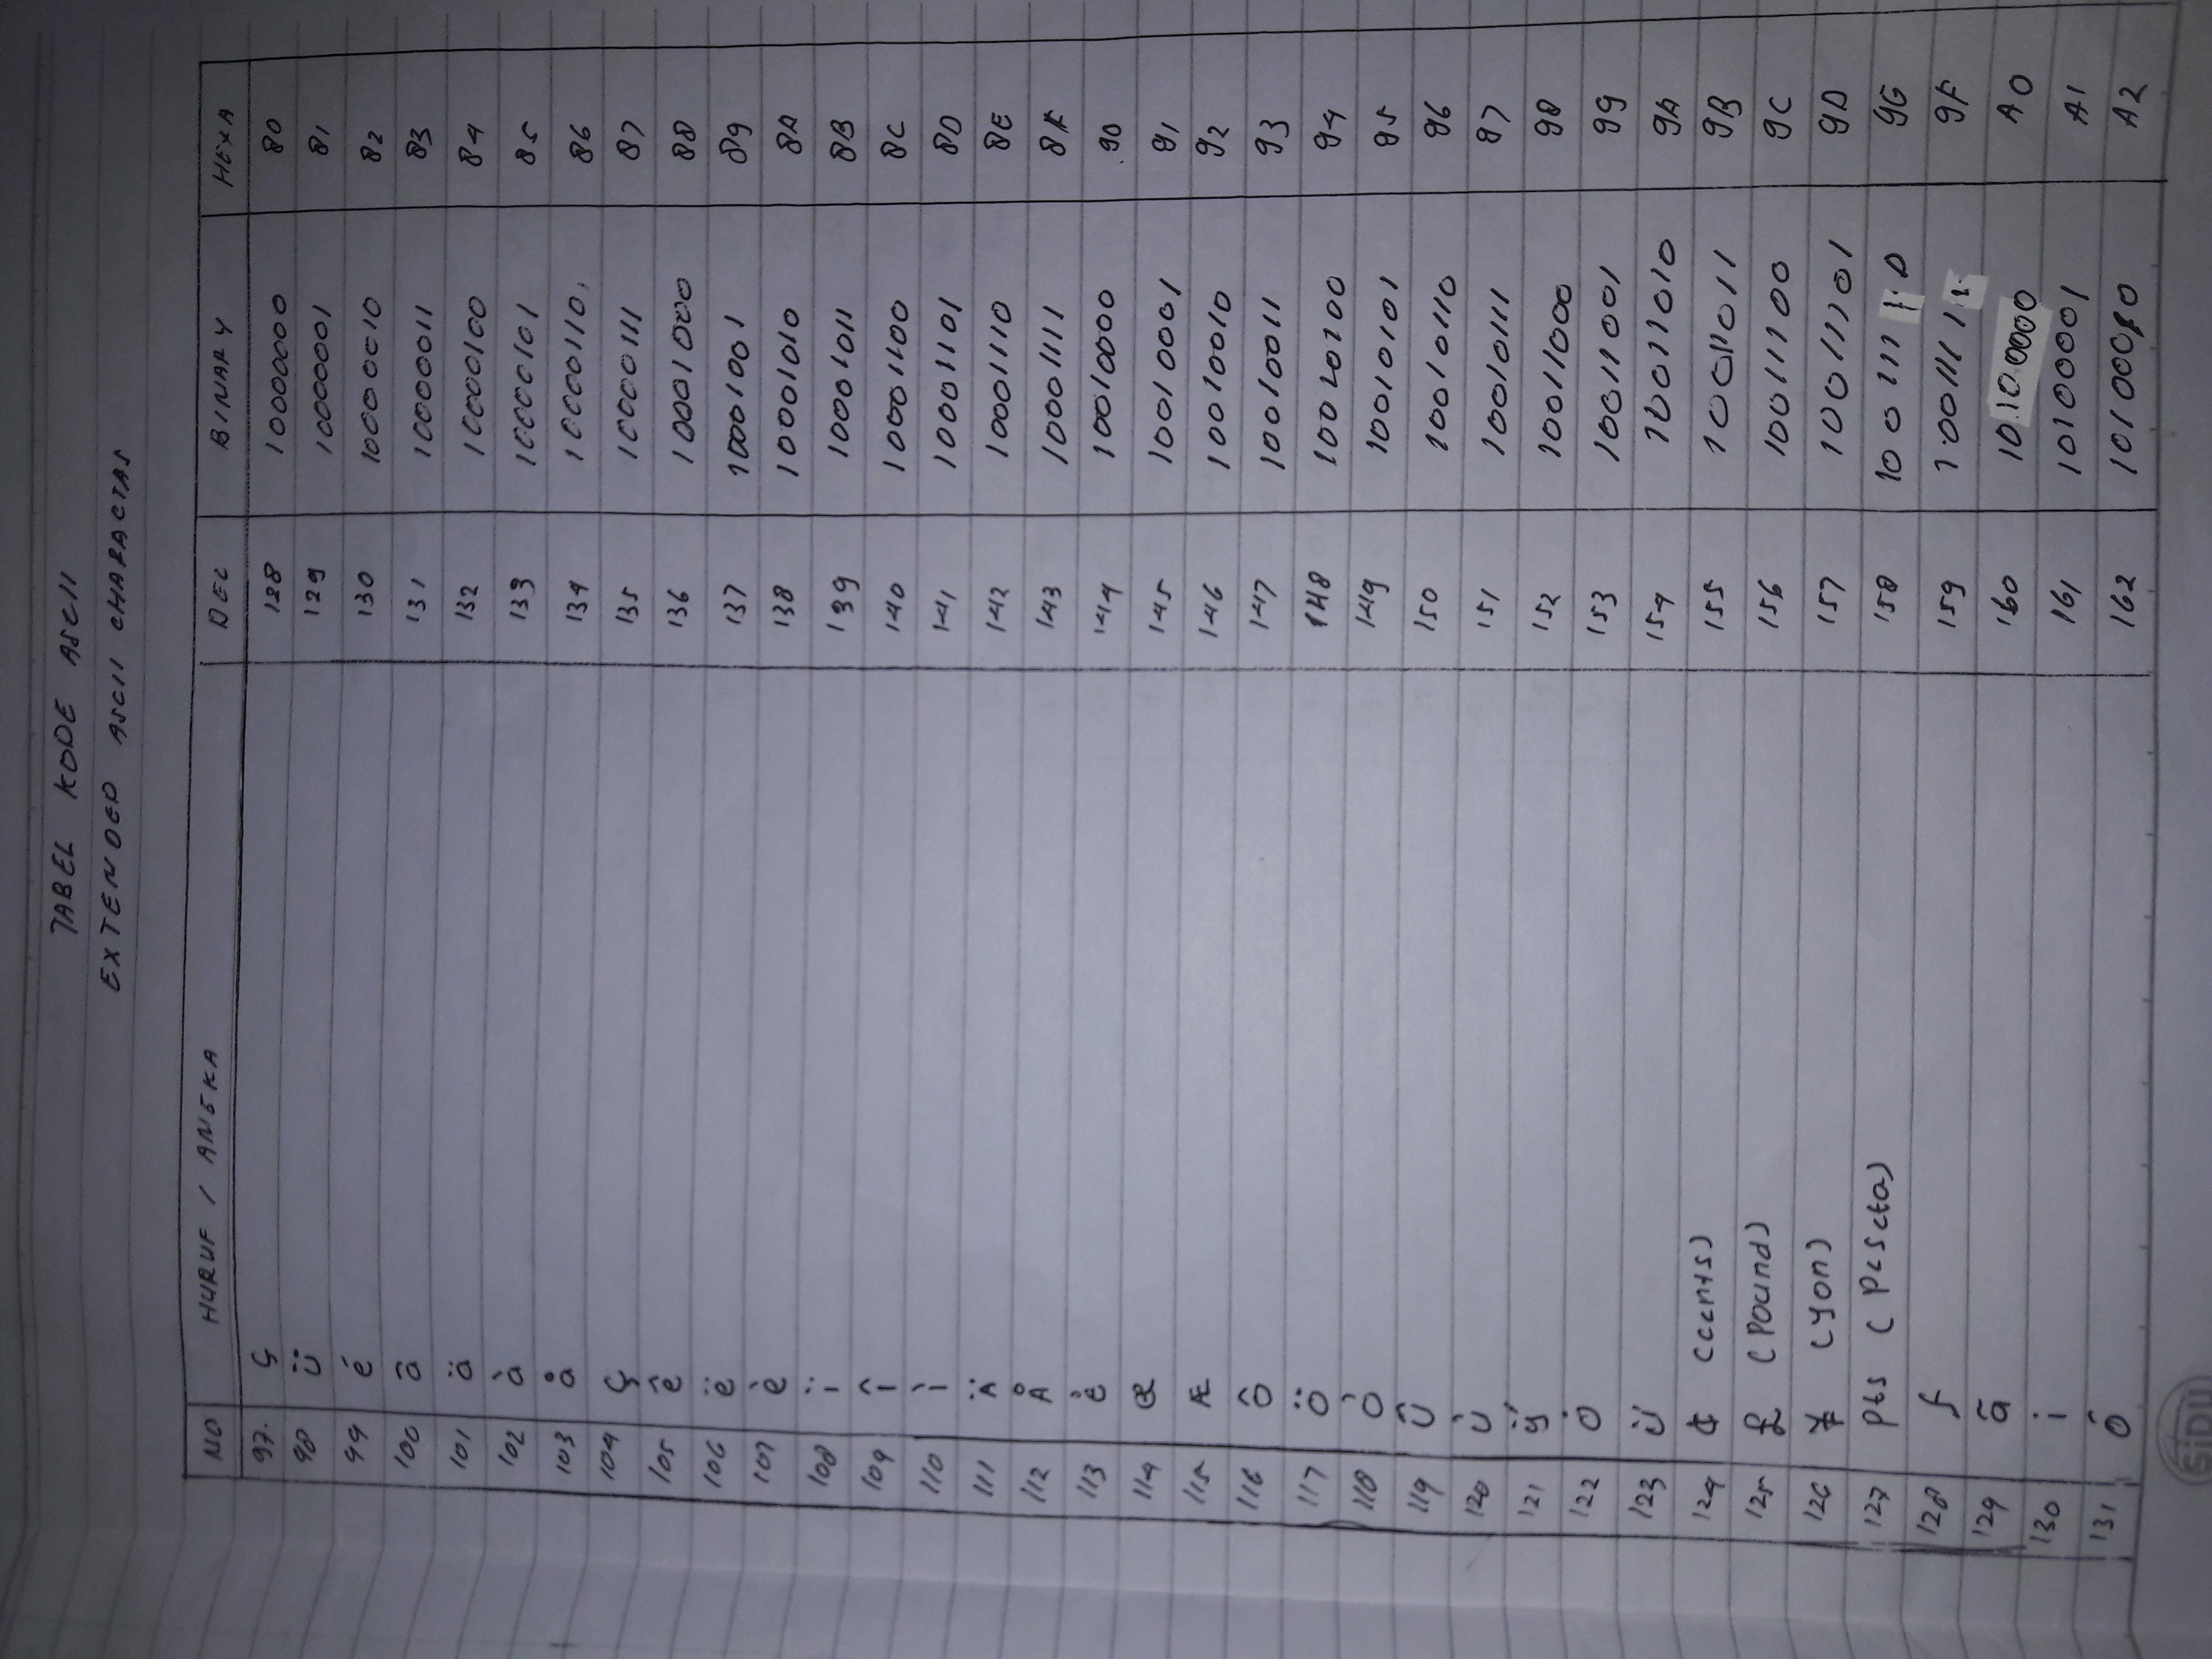 TABEL KODE ASCII
EXTENDED ASCII CHARACTAS
NO HURUF / ANGKA DEC BINARY HEXA
97. ç 128 10000000 80
98 ü 129 10000001 81
99 é 130 10000010 82
100 â 131 10000011 83
101 ä 132 10000100 84
102 à 133 10000101 85
103 å 134 10000110 86
104 ç 135 10000111 87
105 ê 136 10001000 88
106 ë 137 10001001 89
107 è 138 10001010 8A
108 ï 139 10001011 8B
109 î 140 10001100 8C
110 ì 141 10001101 8D
111 Ä 142 10001110 8E
112 Å 143 10001111 8F
113 144 10010000 90
114 æ 145 10010001 91
115 Æ 146 10010010 92
116 ô 147 10010011 93
117 ö 148 10010100 94
118 ò 149 10010101 95
119 û 150 10010110 96
120 ù 151 10010111 97
121 ÿ 152 10011000 98
122 153 10011001 99
123 Ü 154 10011010 9A
124 ¢ (cents) 155 10011011 9B
125 £ (pound) 156 10011100 9C
126 ¥ (yon) 157 10011101 9D
127 pts (peseta) 158 10011110 9E
128 ƒ 159 10011111 9F
129 ã 160 10100000 A0
130 i 161 10100001 A1
131 ó 162 10100010 A2
SiDU